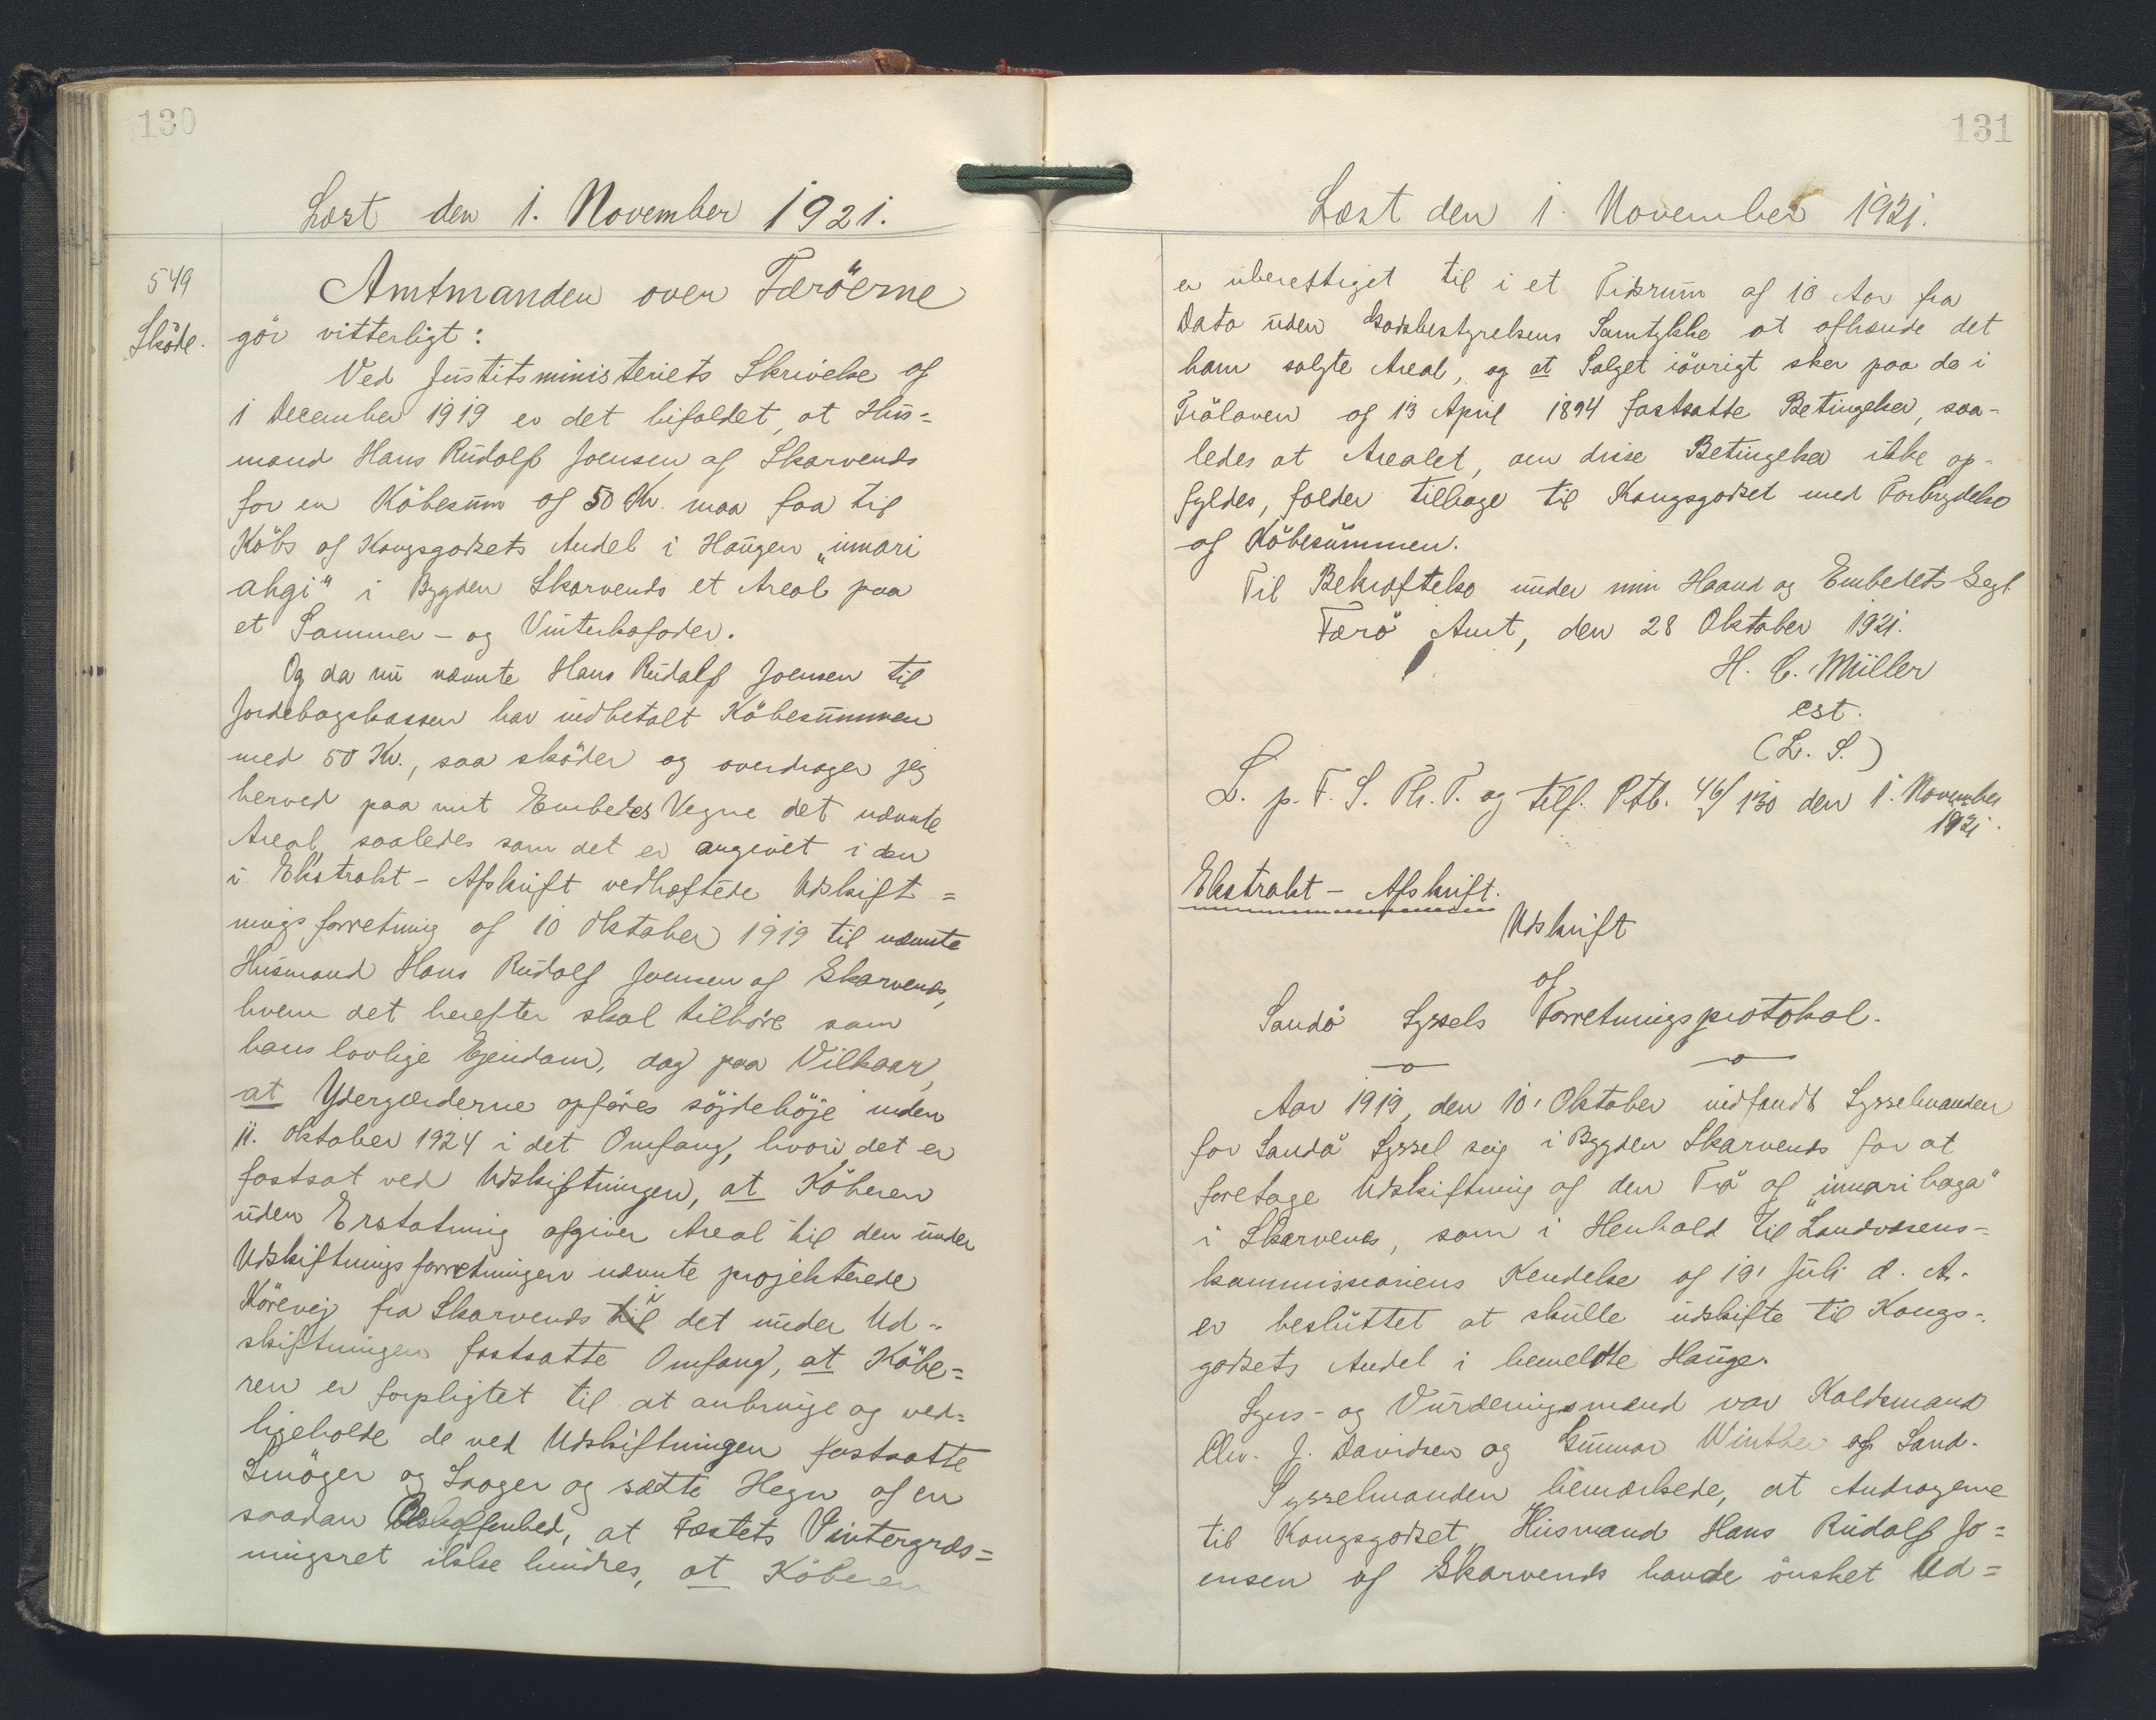 130
Læst den 1. November 1921.
549
Sköde.
Amtmanden over Færöerne
gör vitterligt:
Ved Justitsministeriets Skrivelse af
1 December 1919 er det bifaldet, at Hus=
mand Hans Rudolf Joensen af Skarvenes
for en Köbesum af 50 Kr. maa faa til
Köbs af Kongsgodsets Andel i Haugen „innari
ahgi" i Bygden Skarvenes et Areal paa
et Sommer- og Vinterkofoder.
Og da nu nævnte Hans Rudolf Joensen til
Jordebogskassen har indbetalt Köbesummen
med 50 Kr., saa sköder og overdrager jeg
herved paa mit Embedes Vegne det nævnte
Areal, saaledes som det er angivet i den
i Ekstrakt-Afskrift vedhæftede Udskift=
ningsforretning af 10 Oktober 1919 til nævnte
Husmand Hans Rudolf Joensen af Skarvenes,
hvem det herefter skal tilhöre som
hans lovlige Ejendom, dog paa Vilkaar,
at Ydergærderne opföres söjdehöje inden
11. Oktober 1924 i det Omfang, hvori det er
fastsat ved Udskiftningen, at Köberen
uden Erstatning afgiver Areal til den under
Udskiftningsforretningen nævnte projekterede
Körevej fra Skarvenes i det under Ud=
skiftningen fastsatte Omfang, at Köbe=
ren er forpligtet til at anbringe og ved=
ligeholde de ved Udskiftningen fastsatte
Smöger og Laager og sætte Hegn af en
saadan Beskaffenhed, at Fæstets Vintergræs=
ningsret ikke hindres, at Köberen
131
Læst den 1. November 1921.
er uberettiget til i et Tidsrum af 10 Aar fra
Dato uden Godsbestyrelsens Samtykke at afhænde det
ham solgte Areal, og at Salget iövrigt sker paa de i
Tröloven af 13 April 1894 fastsatte Betingelser, saa-
ledes at Arealet, om disse Betingelser ikke op-
fyldes, falder tilbage til Kongsgodset med Forbrydelse
af Köbesummen.
Til Bekræftelse under min Haand og Embedets Segl.
Færö Amt, den 28 Oktober 1921.
H. C. Müller
cst.
(L. S.)
L. p. F. S. Th. T. og tilf. Ptb. 46/130 den 1. November
1921.
Ekstrakt-Afskrift.
Udskrift
af
Sandö Syssels Forretningsprotokol.
Aar 1919, den 10' Oktober indfandt Sysselmanden
for Sandö Syssel sig i Bygden Skarvenes for at
foretage Udskiftning af den Trö af „innari haga"
i Skarvenes, som i Henhold til Landvæsens-
kommissionens Kendelse af 19' Juli d. A.
er besluttet at skulle udskifte til Kongs-
godsets Andel i bemeldte Hauge.
Syns- og Vurderingsmænd var Kaldsmand
Chr. J. Davidsen og Gunnar Winther af Sand.
Sysselmanden bemærkede, at Andrageren
til Kongsgodset, Husmand Hans Rudolf Jo=
ensen af Skarvenes havde önsket Ud=